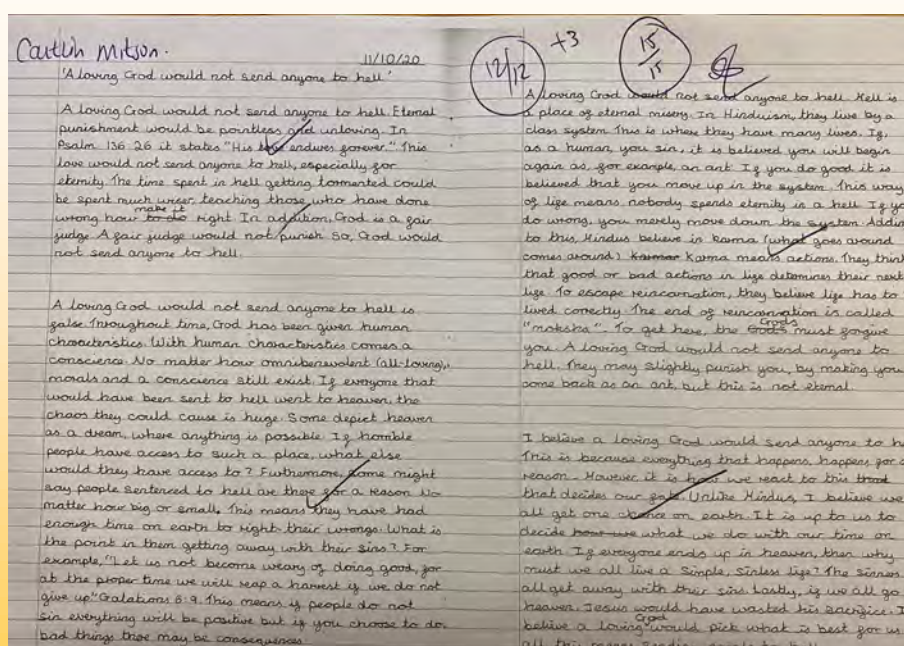 Caitlin Mitson.
11/10/20
'A loving God would not send anyone to hell'
A loving God would not send anyone to hell. Eternal
punishment would be pointless and unloving. In
Psalm 136:26 it states "His endures forever." This
love would not send anyone to hell, especially for
eternity. The time spent in hell getting tormented could
be spent much wiser, teaching those who have done
wrong how to do make it right. In addition, God is a fair
judge. A fair judge would not punish. So, God would
not send anyone to hell.
A loving God would not send anyone to hell is
false. Throughout time, God has been given human
characteristics. With human characteristics comes a
conscience. No matter how omnibenevolent (all-loving),
morals and a conscience still exist. If everyone that
would have been sent to hell went to heaven, the
chaos they could cause is huge. Some depict heaven
as a dream, where anything is possible. If horrible
people have access to such a place, what else
would they have access to? Furthermore, some might
say people sentenced to hell are there for a reason. No
matter how big or small. This means they have had
enough time on earth to right their wrongs. What is
the point in them getting away with their sins? For
example, "Let us not become weary of doing good, for
at the proper time we will reap a harvest if we do not
give up" Galations 6:9. This means if people do not
sin everything will be positive but if you choose to do
bad things there may be consequences.
12/12
+3
15/15
A loving God would not send anyone to hell. Hell is
a place of eternal misery. In Hinduism, they live by a
class system. This is where they have many lives. If,
as a human, you sin, it is believed you will begin
again as, for example, an ant. If you do good it is
believed that you move up in the system. This way
of life means nobody spends eternity in a hell. If you
do wrong, you merely move down the system. Addin
to this, Hindus believe in karma (what goes around
comes around) Karmar Karma means actions. They think
that good or bad actions in life determines their next
life. To escape reincarnation, they believe life has to
lived correctly. The end of reincarnation is called
"moksha". To get here, the Gods must forgive
you. A loving God would not send anyone to
hell. They may slightly punish you, by making you
come back as an ant, but this is not eternal.
I believe a loving God would send anyone to he
This is because everything that happens, happens for a
reason. However it is how we react to this that
that decides our fate. Unlike Hindus, I believe we
all get one chance on earth. It is up to us to
decide how we what we do with our time on
earth. If everyone ends up in heaven, then why
must we all live a simple, sinless life? The sinners
all get away with their sins. Lastly, if we all go
heaven, Jesus would have wasted his sacrifice. I
believe a loving God would pick what is best for us